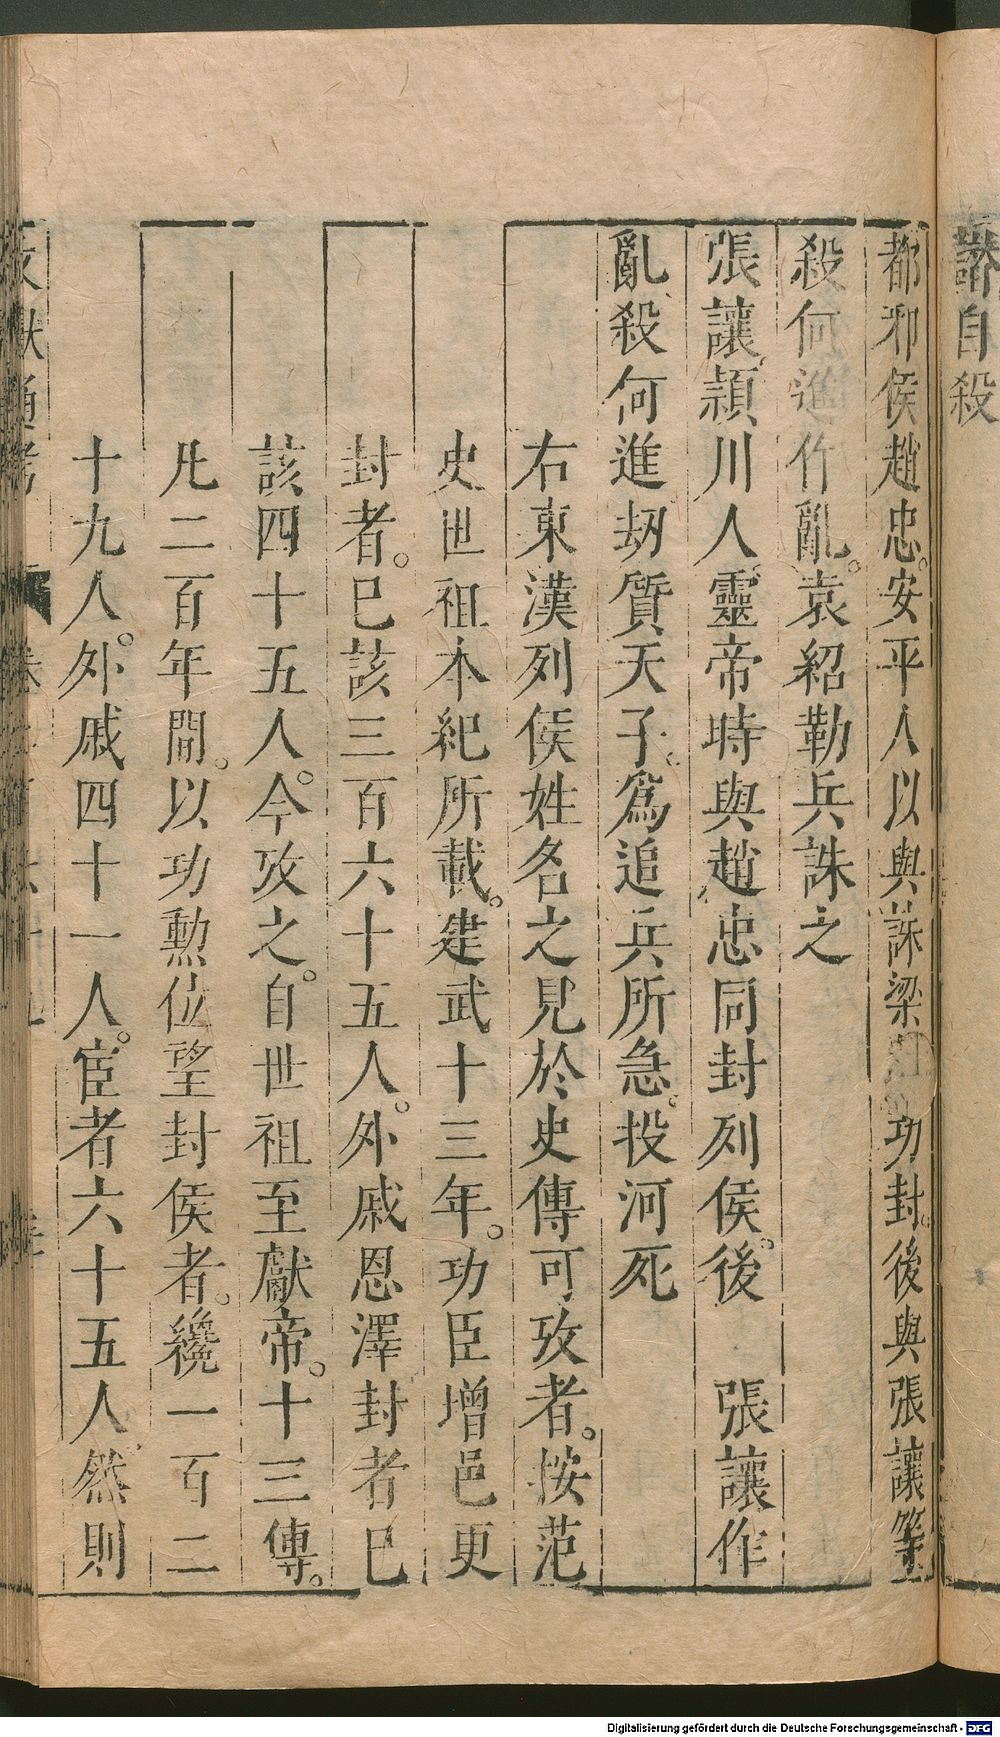 自殺
都邪侯趙忠。安平人以與誅梁功封。後與張讓等
殺何進作亂。袁紹勒兵誅之
張讓頴川人靈帝時與趙忠同封列侯。後　張讓作
亂殺何進刼質天子。爲追兵所急。投河死
右東漢列侯姓名之見於史傳可攷者。按范
史世祖本紀所載。建武十三年。功臣增邑更
封者。已該三百六十五人。外戚恩澤封者已
該四十五人。今攷之。自世祖至獻帝。十三傳。
凡二百年間。以功勲位望封侯者。纔一百二
十九人。外戚四十一人。宦者六十五人然則
Digitalisierung gefördert durch die Deutsche Forschungsgemeinschaft - DFG